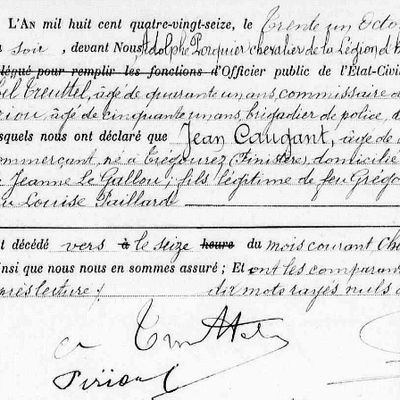 L'AN mil huit cent quatre-vingt-seize, le Trente un Octo
soir, devant Nous, Adolphe Porquier chevalier de la Légion d'h
élégué pour remplir les fonctions d'Officier public de l'Etat-Civil
bel Treuttel, âgé de quarante un ans, commissaire d
iriou, âgé de cinquante un ans, brigadier de police, d
esquels nous ont déclaré que Jean Caugant, âgé de
ommerçant, né à Trégourez (Finistère), domicilié
Jeanne Le Gallou; fils légitime de feu Grégo
Louise Paillard
t décédé vers à le seize heure du mois courant, che
insi que nous nous en sommes assuré; Et ont les comparant
près lecture; dix mots rayés nuls
Treuttel
Piriou